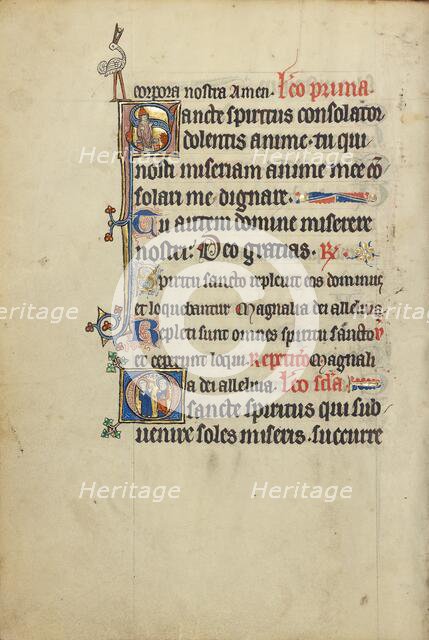 corpora nostra Amen. Lc̄o prima.
Sancte spiritus consolator
dolentis anime. tu qui
nosti miseriam anime mee cō
solari me dignare.
Tu autem domine miserere
nostri. Deo gratias. R.
Spiritu sancto repleuit eos dominus
et loquebantur Magnalia dei alleluia.
Repleti sunt omnes spiritu sancto V
et ceperunt loqui. Repetitio Magnali
a dei alleluia. Lc̄o scd̄a.
O sancte spiritus qui sub
uenire soles miseris. succurre
Heritage Heritage
Heritage Heritage Heritage
Heritage Heritage